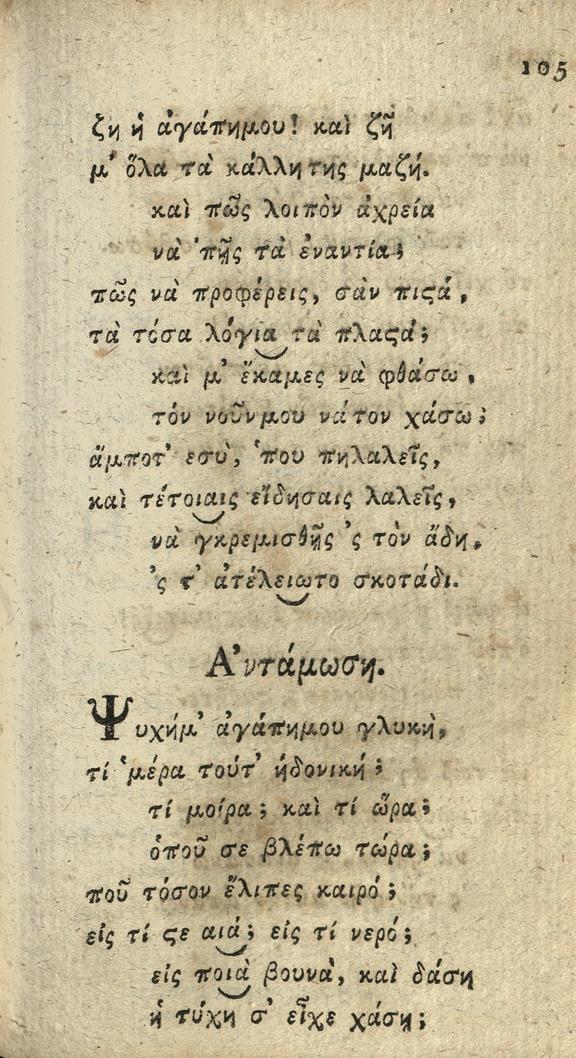 105
ζῃ ἡ ἀγάπημου! καὶ ζῇ
μ' ὅλα τὰ κάλλητης μαζή.
καὶ πῶς λοιπὸν ἀχρεία
νὰ 'πῇς τὰ ἐναντία;
πῶς νὰ προφέρεις, σὰν πιϛά,
τὰ τόσα λόγι͜α τὰ πλαϛά;
καὶ μ' ἔκαμες νὰ φθάσω,
τόν νοῦνμου νάτον χάσω;
ἄμποτ' εσὺ, 'που πηλαλεῖς,
καὶ τέτοι͜αις εἴδησαις λαλεῖς,
νὰ γκρεμισθῇς 'ς τὸν ἅδη,
'ς τ' ἀτέλει͜ωτο σκοτάδι.
Α'ντάμωση.
Ψυχήμ' ἀγάπημου γλυκὴ,
τί 'μέρα τούτ' ἡδονική;
τί μοίρα; καὶ τί ὥρα;
ὁποῦ σε βλέπω τώρα;
ποῦ τόσον ἔλιπες καιρό;
εἰς τί ϛε αι͜ά; εἰς τί νερό;
εἰς ποι͜ὰ βουνὰ, καὶ δάση
ἡ τύχη σ' εἶχε χάση;